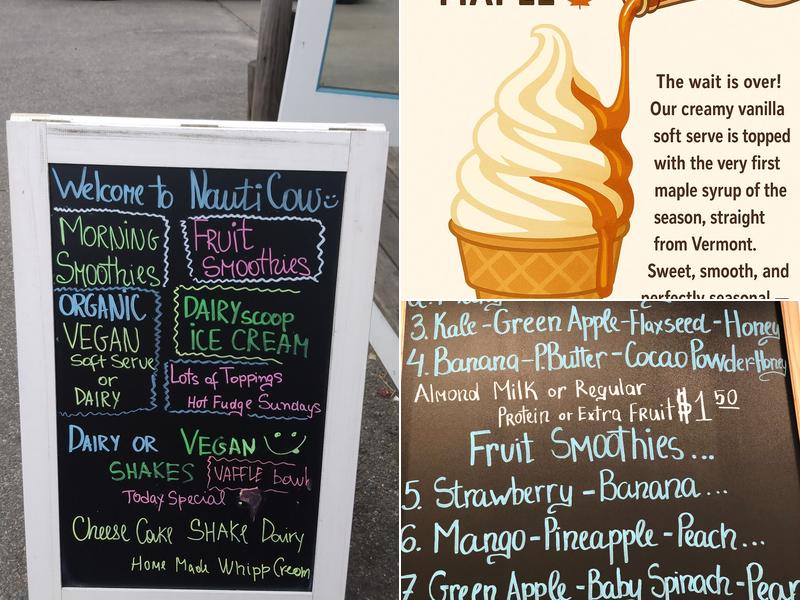 Welcome to NautiCow
MORNING
Smoothies
FRUIT
Smoothies
ORGANIC
VEGAN
Soft Serve
or
DAIRY
DAIRY scoop
iCE CREAM
Lots of Toppings
Hot Fudge Sundays
DAIRY OR VEGAN
SHAKES VAFFLE bowls
Today Special
Cheese Cake SHAKE Dairy
Home Made Whipp Cream
MAPLE
The wait is over!
Our creamy vanilla
soft serve is topped
with the very first
maple syrup of the
season, straight
from Vermont.
Sweet, smooth, and
perfectly seasonal —
3. Kale - Green Apple - Flaxseed - Honey
4. Banana - P.Butter - Cocao Powder - Honey
Almond Milk or Regular
Protein or Extra Fruit $1 50
Fruit Smoothies...
5. Strawberry - Banana...
6. Mango - Pineapple - Peach...
7 Green Apple - Baby Spinach - Pear